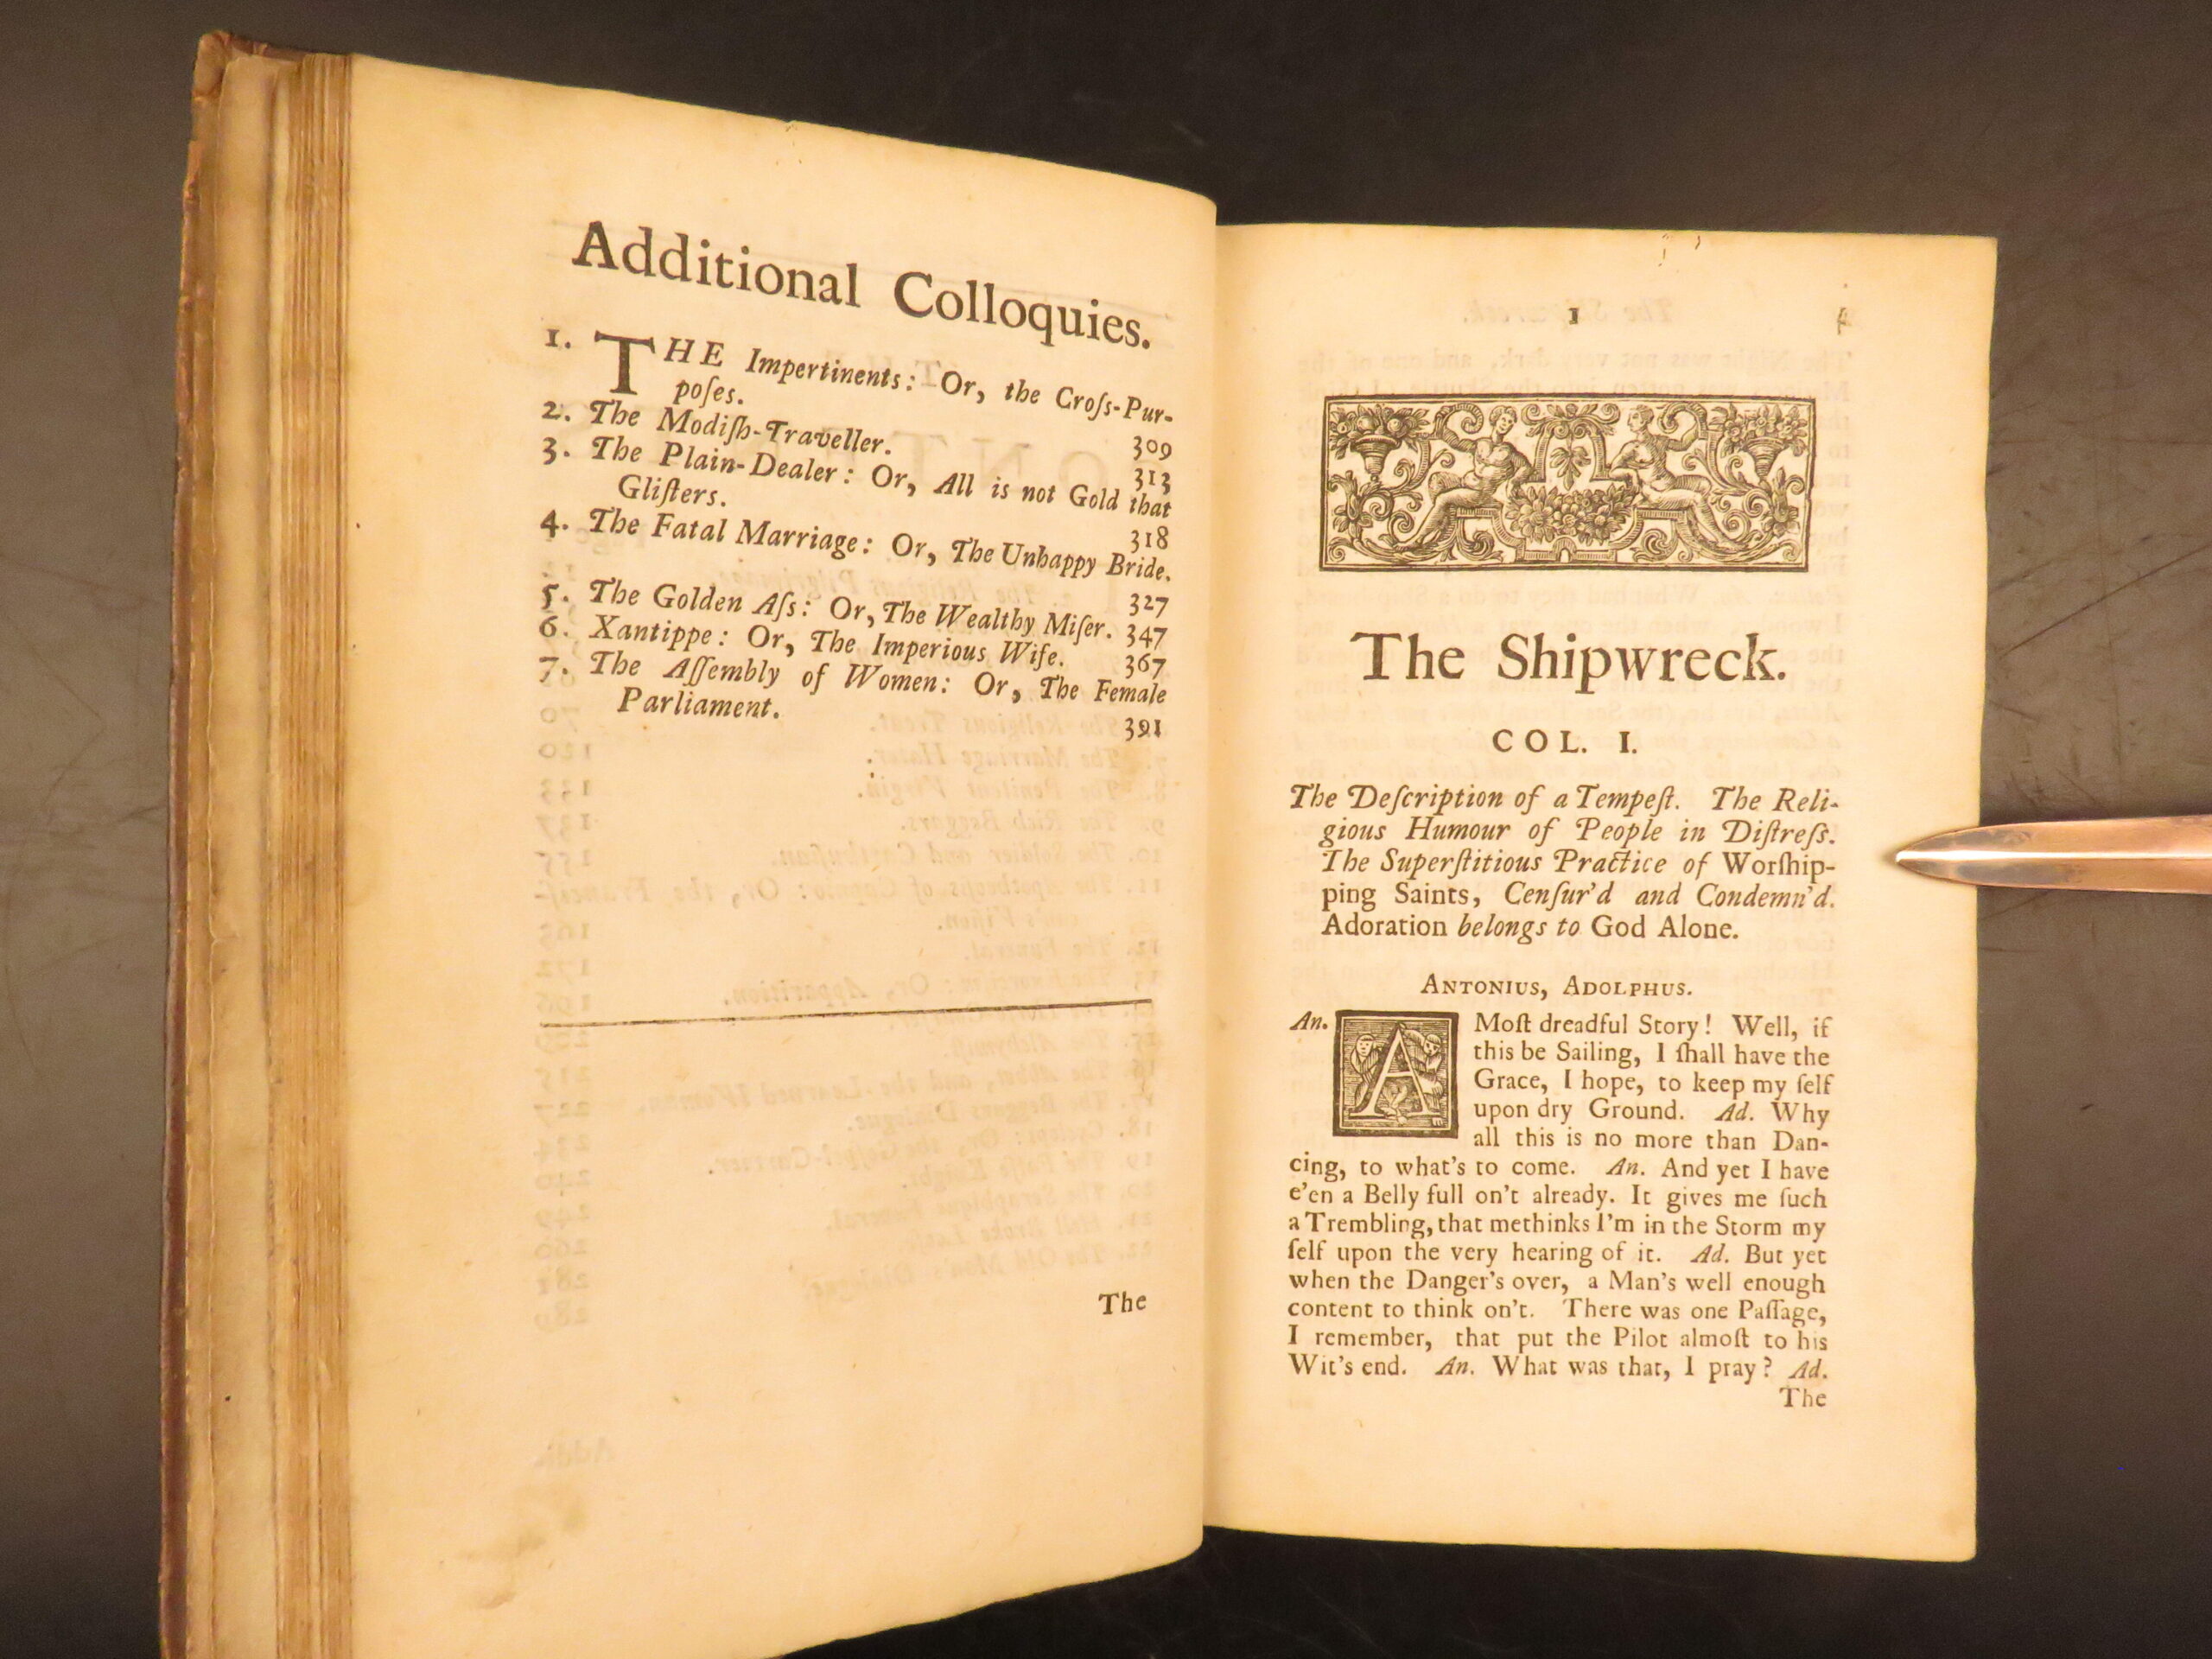 Additional Colloquies.
1. THE Impertinents: Or, the Croſs-Pur-
poſes. 309
2. The Modiſh-Traveller. 313
3. The Plain-Dealer: Or, All is not Gold that
Gliſters. 318
4. The Fatal Marriage: Or, The Unhappy Bride.
327
5. The Golden Aſs: Or, The Wealthy Miſer. 347
6. Xantippe: Or, The Imperious Wife. 367
7. The Aſſembly of Women: Or, The Female
Parliament. 391
The
1
The Shipwreck.
COL. I.
The Deſcription of a Tempeſt. The Reli-
gious Humour of People in Diſtreſs.
The Superſtitious Practice of Worſhip-
ping Saints, Cenſur'd and Condemn'd.
Adoration belongs to God Alone.
ANTONIUS, ADOLPHUS.
An. A Moſt dreadful Story! Well, if
this be Sailing, I ſhall have the
Grace, I hope, to keep my ſelf
upon dry Ground. Ad. Why
all this is no more than Dan-
cing, to what's to come. An. And yet I have
e'en a Belly full on't already. It gives me ſuch
a Trembling, that methinks I'm in the Storm my
ſelf upon the very hearing of it. Ad. But yet
when the Danger's over, a Man's well enough
content to think on't. There was one Paſſage,
I remember, that put the Pilot almoſt to his
Wit's end. An. What was that, I pray? Ad.
The